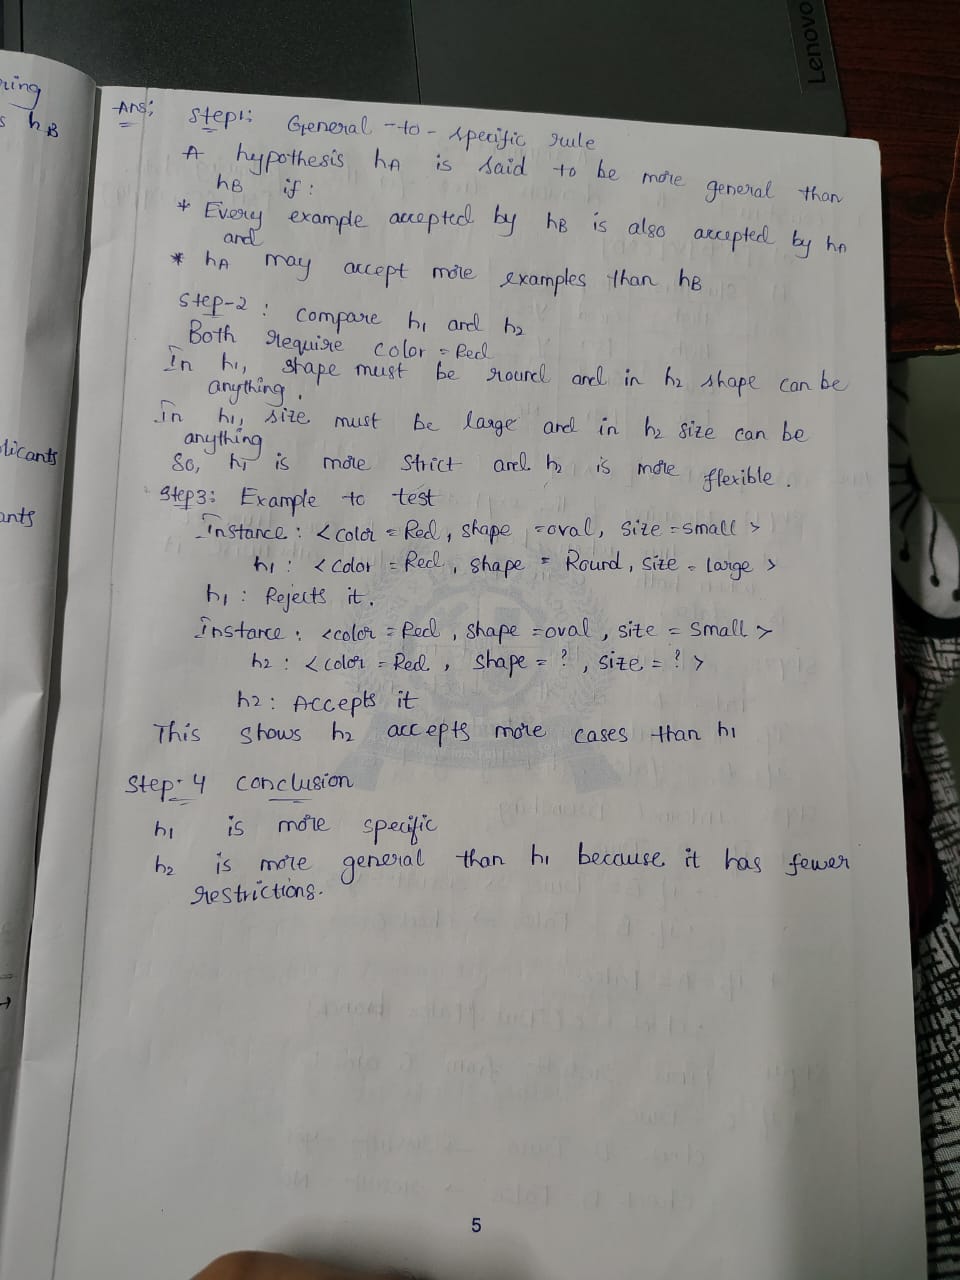 Lenovo
ring
s hB
licants
ants
Ans:
Step1: General-to-specific rule
A hypothesis hA is said to be more general than
hB if:
* Every example accepted by hB is also accepted by hA
and
* hA may accept more examples than hB
Step-2: compare h1 and h2
Both require color = Red
In h1, shape must be round and in h2 shape can be
anything.
In h1, size must be large and in h2 size can be
anything
So, h1 is more strict and h2 is more flexible.
Step3: Example to test
Instance: <color = Red, shape = oval, size = small>
h1: <color = Red, shape = Round, size = large>
h1: Rejects it.
Instance: <color = Red, shape = oval, size = small>
h2: <color = Red, shape = ?, size = ?>
h2: Accepts it
This shows h2 accepts more cases than h1
Step-4 conclusion
h1 is more specific
h2 is more general than h1 because it has fewer
restrictions.
5